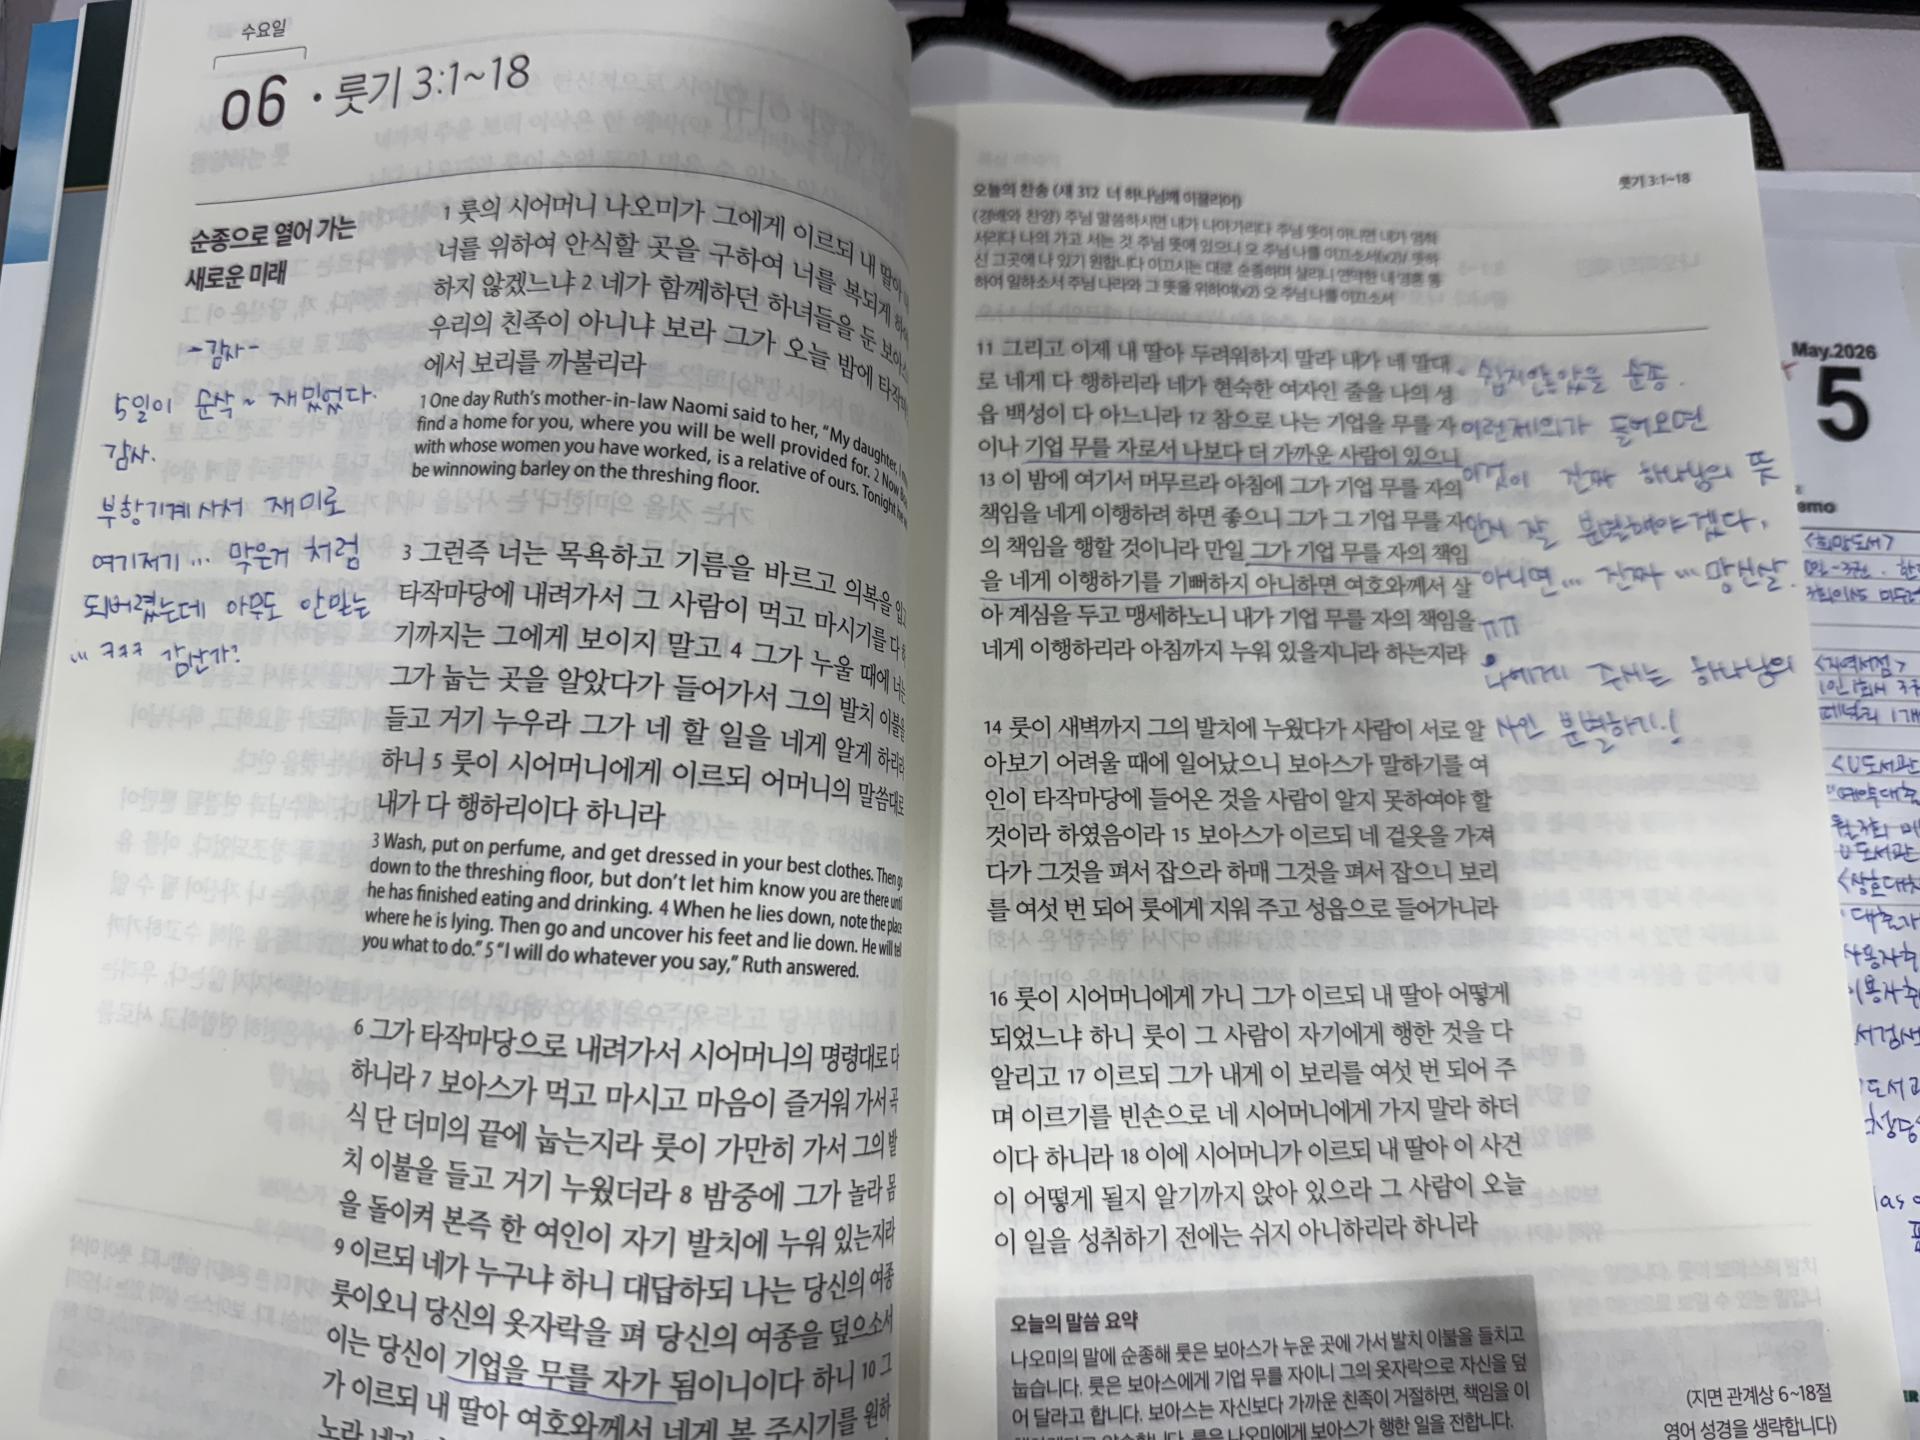 수요일
06 · 룻기 3:1~18
순종으로 열어 가는
새로운 미래
-감사-
5일이 순삭~ 재밌었다.
감사.
부항기계 사서 재미로
여기저기... 막은거 처럼
되버렸는데 아무도 안믿는
... ㅋㅋㅋ 감산가?
1 룻의 시어머니 나오미가 그에게 이르되 내 딸아
너를 위하여 안식할 곳을 구하여 너를 복되게 하여야
하지 않겠느냐 2 네가 함께하던 하녀들을 둔 보아스는
우리의 친족이 아니냐 보라 그가 오늘 밤에 타작마당
에서 보리를 까불리라
1 One day Ruth's mother-in-law Naomi said to her, "My daughter, I
find a home for you, where you will be well provided for. 2 Now
with whose women you have worked, is a relative of ours. Tonight he
be winnowing barley on the threshing floor.
3 그런즉 너는 목욕하고 기름을 바르고 의복을 입고
타작마당에 내려가서 그 사람이 먹고 마시기를 다 하
기까지는 그에게 보이지 말고 4 그가 누울 때에 너는
그가 눕는 곳을 알았다가 들어가서 그의 발치 이불을
들고 거기 누우라 그가 네 할 일을 네게 알게 하리라
하니 5 룻이 시어머니에게 이르되 어머니의 말씀대로
내가 다 행하리이다 하니라
3 Wash, put on perfume, and get dressed in your best clothes. Then go
down to the threshing floor, but don't let him know you are there until
he has finished eating and drinking. 4 When he lies down, note the place
where he is lying. Then go and uncover his feet and lie down. He will tell
you what to do." 5 "I will do whatever you say," Ruth answered.
6 그가 타작마당으로 내려가서 시어머니의 명령대로 다
하니라 7 보아스가 먹고 마시고 마음이 즐거워 가서 곡
식 단 더미의 끝에 눕는지라 룻이 가만히 가서 그의 발
치 이불을 들고 거기 누웠더라 8 밤중에 그가 놀라 몸
을 돌이켜 본즉 한 여인이 자기 발치에 누워 있는지라
9 이르되 네가 누구냐 하니 대답하되 나는 당신의 여종
룻이오니 당신의 옷자락을 펴 당신의 여종을 덮으소서
이는 당신이 기업을 무를 자가 됨이니이다 하니 10 그
가 이르되 내 딸아 여호와께서 네게 복 주시기를 원하
노라 네가
룻기 3:1~18
오늘의 찬송 (새 312 너 하나님께 이끌리어)
(경배와 찬양) 주님 말씀하시면 내가 나아가리다 주님 뜻이 아니면 내가 멈춰
서리다 나의 가고 서는 것 주님 뜻에 있으니 오 주님 나를 이끄소서(x2)/ 뜻하
신 그곳에 나 있기 원합니다 이끄시는 대로 순종하며 살리니 연약한 내 영혼 통
하여 일하소서 주님 나라와 그 뜻을 위하여(x2) 오 주님 나를 이끄소서
11 그리고 이제 내 딸아 두려워하지 말라 내가 네 말대
로 네게 다 행하리라 네가 현숙한 여자인 줄을 나의 성
읍 백성이 다 아느니라 12 참으로 나는 기업을 무를 자
이나 기업 무를 자로서 나보다 더 가까운 사람이 있으니
13 이 밤에 여기서 머무르라 아침에 그가 기업 무를 자의
책임을 네게 이행하려 하면 좋으니 그가 그 기업 무를 자
의 책임을 행할 것이니라 만일 그가 기업 무를 자의 책임
을 네게 이행하기를 기뻐하지 아니하면 여호와께서 살
아 계심을 두고 맹세하노니 내가 기업 무를 자의 책임을
네게 이행하리라 아침까지 누워 있을지니라 하는지라
· 쉽지않았을 순종.
이런제의가 들어오면
이것이 진짜 하나님의 뜻
인지 잘 분별해야겠다.
아니면... 진짜 ... 망신살.
ㅠㅠ
나에게 주시는 하나님의
사인 분별하기!
14 룻이 새벽까지 그의 발치에 누웠다가 사람이 서로 알
아보기 어려울 때에 일어났으니 보아스가 말하기를 여
인이 타작마당에 들어온 것을 사람이 알지 못하여야 할
것이라 하였음이라 15 보아스가 이르되 네 겉옷을 가져
다가 그것을 펴서 잡으라 하매 그것을 펴서 잡으니 보리
를 여섯 번 되어 룻에게 지워 주고 성읍으로 들어가니라
16 룻이 시어머니에게 가니 그가 이르되 내 딸아 어떻게
되었느냐 하니 룻이 그 사람이 자기에게 행한 것을 다
알리고 17 이르되 그가 내게 이 보리를 여섯 번 되어 주
며 이르기를 빈손으로 네 시어머니에게 가지 말라 하더
이다 하니라 18 이에 시어머니가 이르되 내 딸아 이 사건
이 어떻게 될지 알기까지 앉아 있으라 그 사람이 오늘
이 일을 성취하기 전에는 쉬지 아니하리라 하니라
오늘의 말씀 요약
나오미의 말에 순종해 룻은 보아스가 누운 곳에 가서 발치 이불을 들치고
눕습니다. 룻은 보아스에게 기업 무를 자이니 그의 옷자락으로 자신을 덮
어 달라고 합니다. 보아스는 자신보다 가까운 친족이 거절하면, 책임을 이
(지면 관계상 6~18절
영어 성경을 생략합니다)
May.2026
5
emo
<희망도서>
<지역서점>
<U도서관